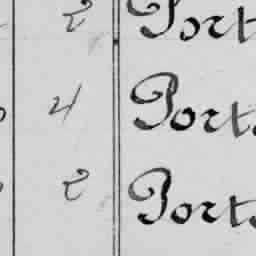 2 Port
4 Port
2 Port